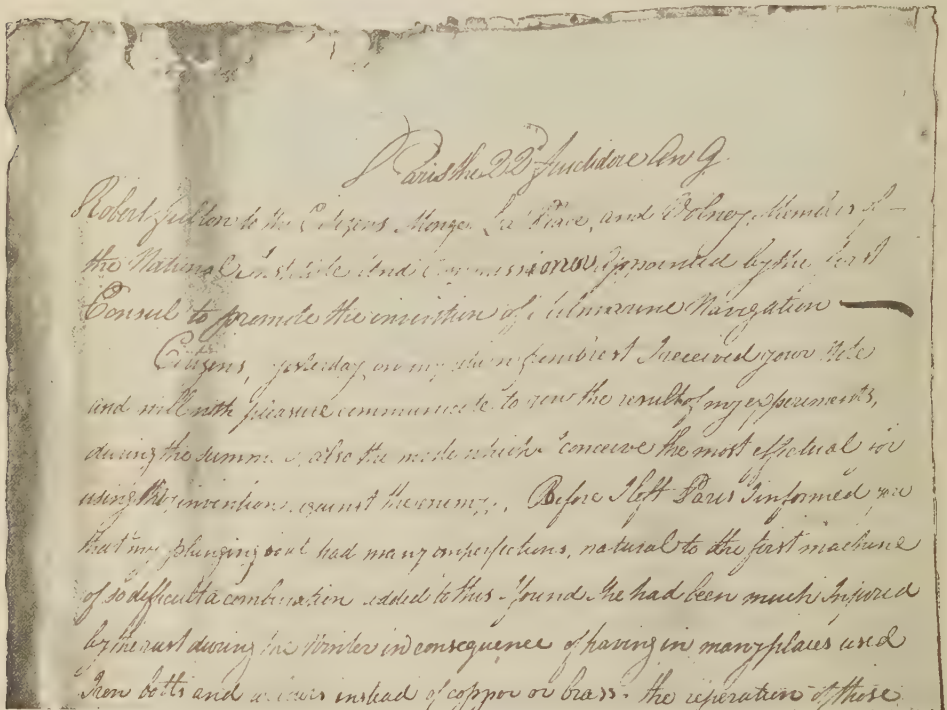 Paris the 22d fructidore An 9.
Robert Fulton to the Citizens Monge, La Place, and Volney, Members of
the National Institute And Commissioners Appointed by the first
Consul to promote the invention of Submarine Navigation
Citizens, yesterday on my return from Brest I received your Note
and will with pleasure communicate to you the result of my experiments,
during the summer, also the mode which I conceive the most effectual for
using the invention against the enemy. Before I left Paris I informed you
that my plunging boat had many imperfections, natural to the first machine
of so difficult a combination added to this I found She had been much Injured
by the rust during the Winter in consequence of having in many places used
Iron bolts and screws instead of copper or brass. the reperation of those